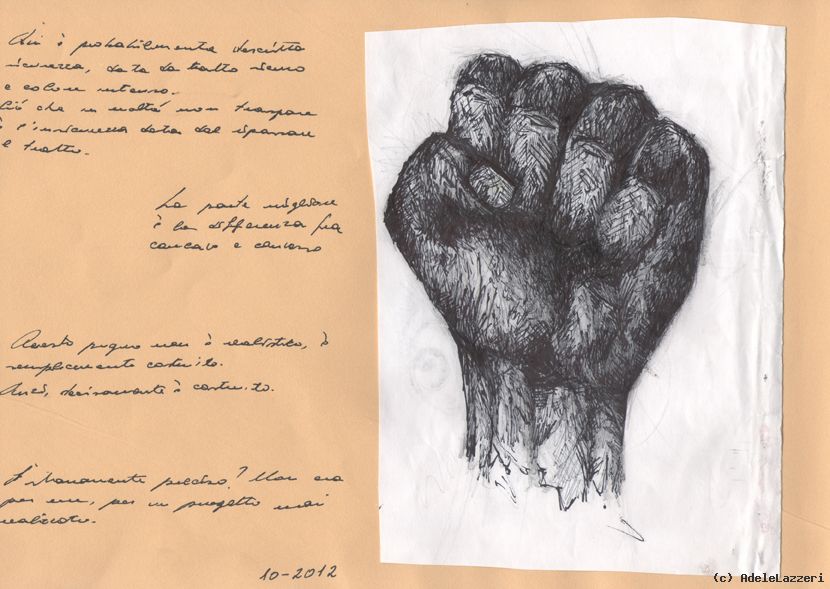 Qui è probabilmente descritta
sicurezza, data da tratto scuro
e colore intenso.
Ciò che in realtà non traspare
è l'insicurezza data dal ripassare
il tratto.
La parte migliore
è la differenza fra
concavo e convesso
Questo pugno non è realistico, è
semplicemente costruito.
Anzi, decisamente è costruito.
È stranamente preciso? Non era
per me, per un progetto mai
realizzato.
10-2012
(c) AdeleLazzeri